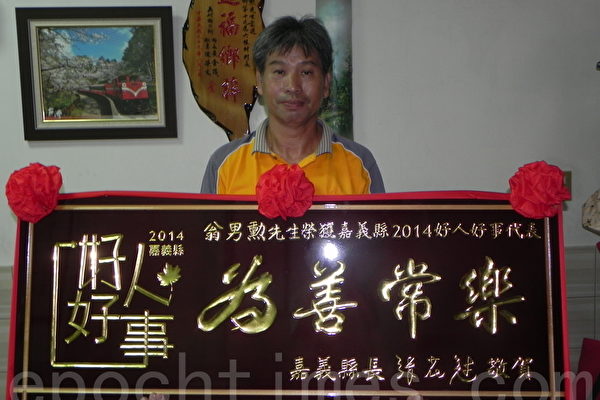 造福鄉梓
翁男勳先生榮獲嘉義縣2014好人好事代表
2014
嘉義縣
好人
好事
為善常樂
嘉義縣長 張花冠 敬賀
epochtimes.com